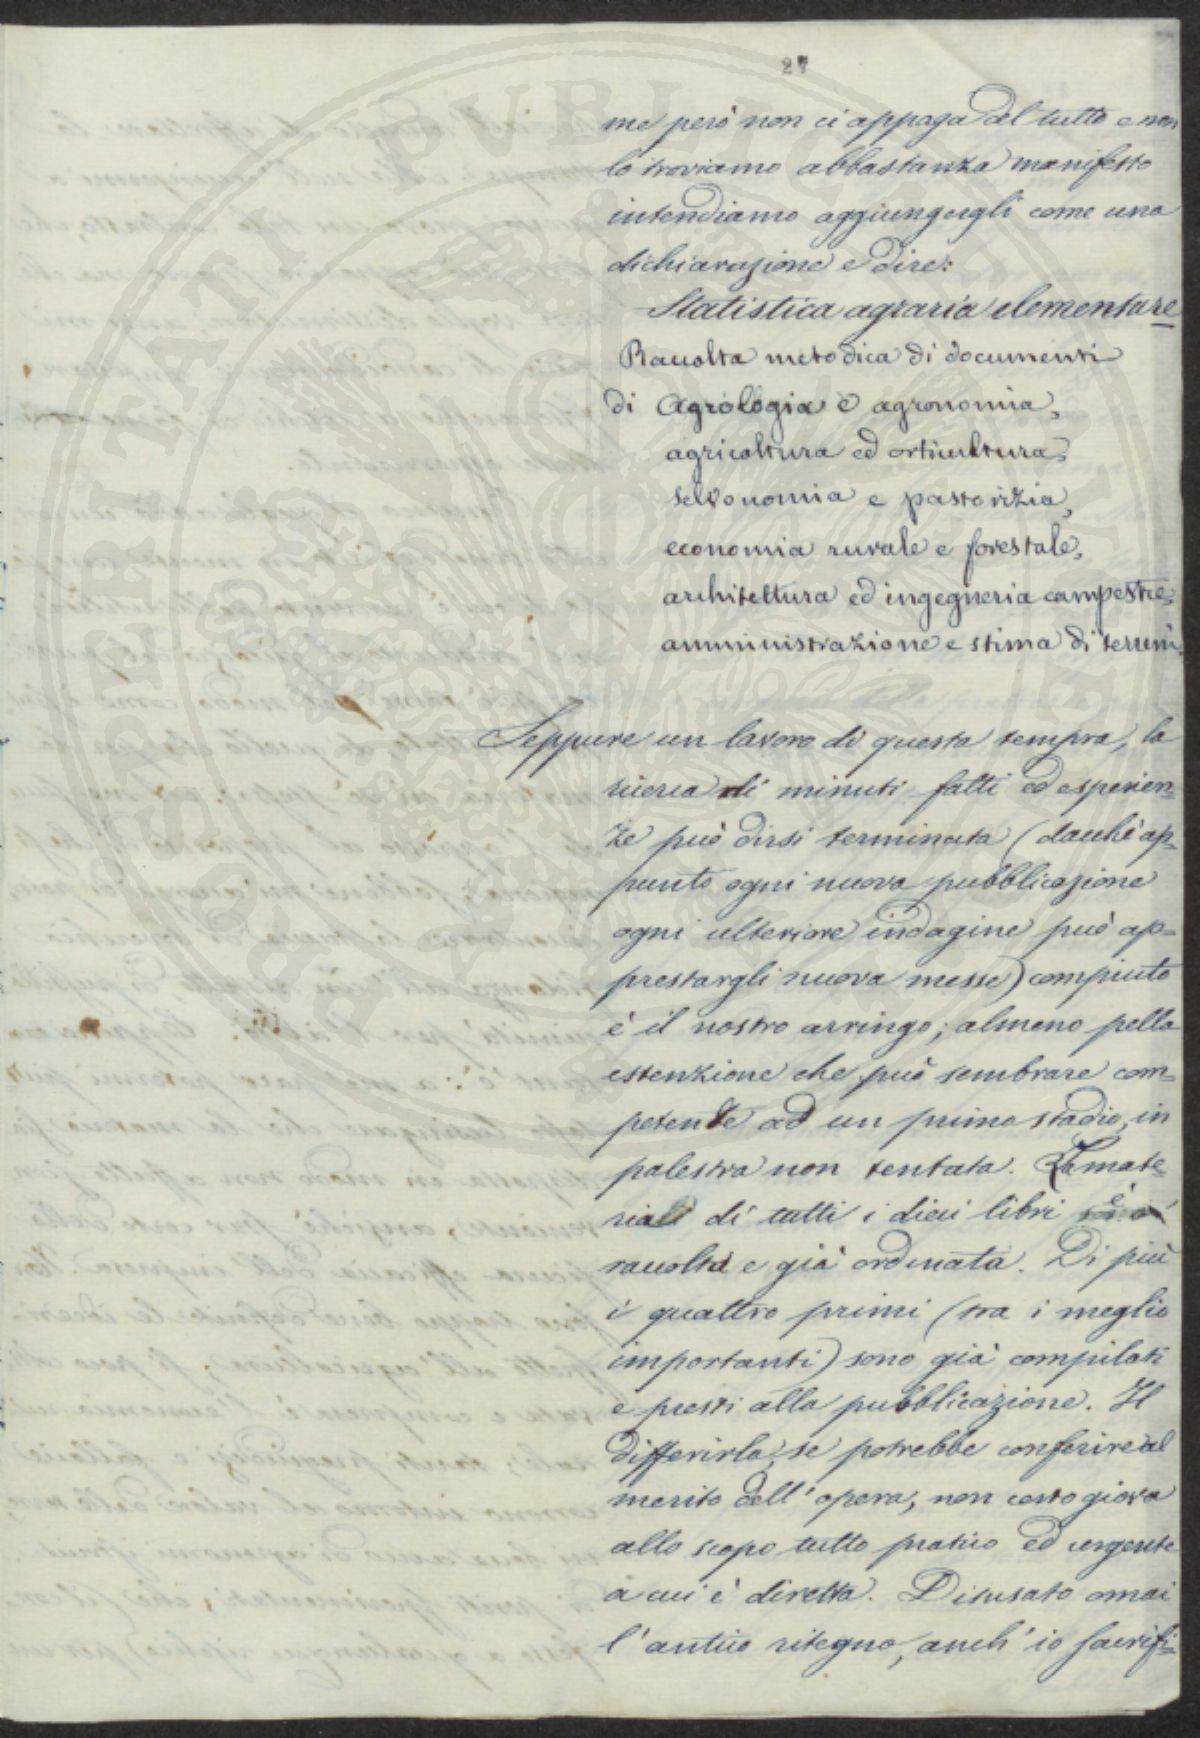 27
me però non ci appaga del tutto e non
lo troviamo abbastanza manifesto
intendiamo aggiungergli come una
dichiarazione e dire:
Statistica agraria elementare
Raccolta metodica di documenti
di Agrologia e agronomia,
agricoltura ed orticultura,
selvonomia e pastorizia,
economia rurale e forestale,
architettura ed ingegneria campestre,
amministrazione e stima di terreni.
Seppure un lavoro di questa tempra, la
ricerca di minuti fatti ed esperien=
ze può dirsi terminata (dacchè ap=
punto ogni nuova pubblicazione
ogni ulteriore indagine può ap=
prestargli nuova messe) compiuto
è il nostro arringo; almeno pella
estenzione che può sembrare com=
petente ad un primo stadio, in
palestra non tentata. La mate=
ria di tutti i dieci libri è
raccolta e già ordinata. Di più
i quattro primi (tra i meglio
importanti) sono già compilati
e presti alla pubblicazione. Il
differirla, se potrebbe conferire al
merito dell'opera, non certo giova
allo scopo tutto pratico ed urgente
a cui è diretta. Disusato omai
l'antico ritegno, anch'io sacrifi=
PROSPERITATI PVBLICAE